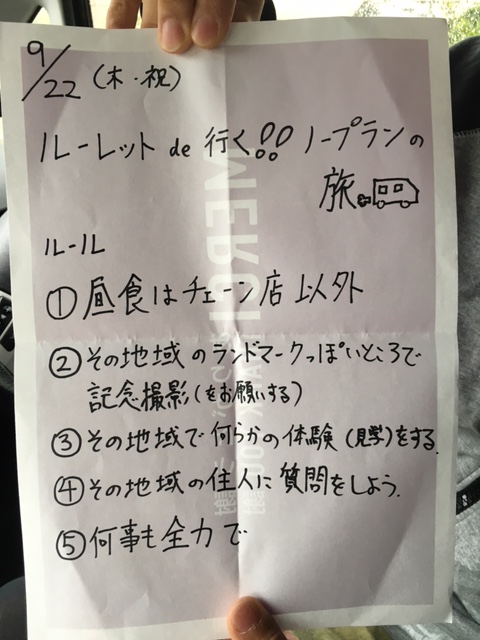 9/22 (木・祝)
ルーレット de 行く!! ノープランの
旅
ルール
①昼食はチェーン店以外
②その地域のランドマークっぽいところで
記念撮影(をお願いする)
③その地域で何らかの体験(見学)をする.
④その地域の住人に質問をしよう.
⑤何事も全力で